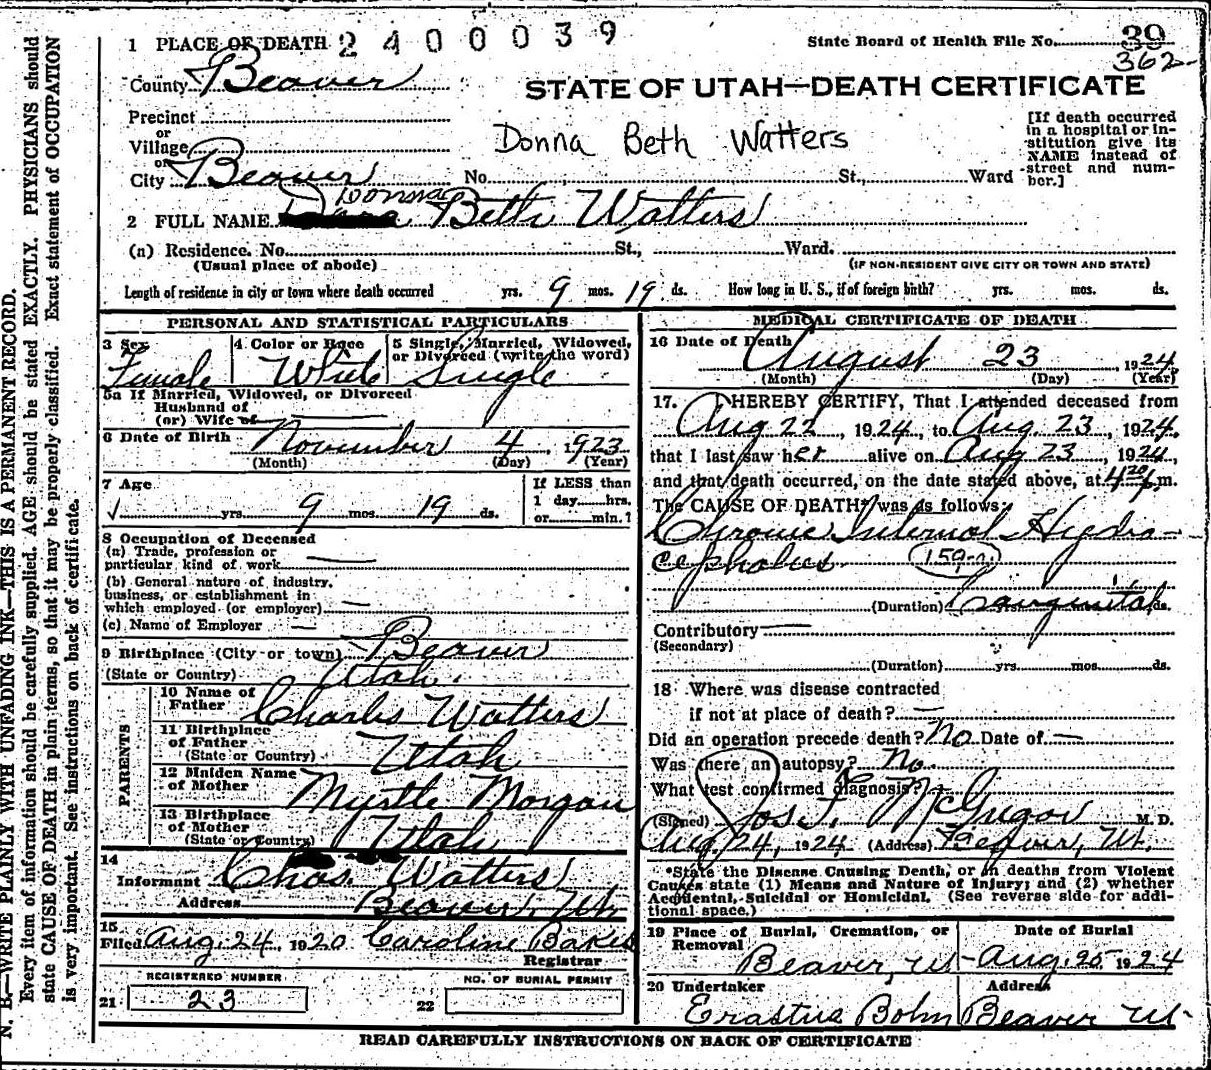 1 PLACE OF DEATH 2400039
State Board of Health File No. 39
362
County Beaver
STATE OF UTAH—DEATH CERTIFICATE
Precinct
or
Village
or
City Beaver No. St., Ward
Donna Beth Watters
[If death occurred in a hospital or institution give its NAME instead of street and number.]
2 FULL NAME Donna Beth Watters
(a) Residence. No. St., Ward.
(Usual place of abode)
(IF NON-RESIDENT GIVE CITY OR TOWN AND STATE)
Length of residence in city or town where death occurred yrs. 9 mos. 19 ds. How long in U. S., if of foreign birth? yrs. mos. ds.
PERSONAL AND STATISTICAL PARTICULARS
3 Sex Female
4 Color or Race White
5 Single, Married, Widowed, or Divorced (write the word) Single
5a If Married, Widowed, or Divorced
Husband of
(or) Wife of
6 Date of Birth November 4, 1923
(Month) (Day) (Year)
7 Age yrs 9 mos. 19 ds.
If LESS than
1 day hrs.
or min.?
8 Occupation of Deceased
(a) Trade, profession or
particular kind of work
(b) General nature of industry,
business, or establishment in
which employed (or employer)
(c) Name of Employer
9 Birthplace (City or town) Beaver
(State or Country) Utah.
PARENTS
10 Name of Father Charles Watters
11 Birthplace of Father (State or Country) Utah
12 Maiden Name of Mother Myrtle Morgan
13 Birthplace of Mother (State or Country) Utah
14
Informant Chas. Watters
Address Beaver, Ut.
15
Filed Aug. 24, 1920 Caroline Bakes
Registrar
REGISTERED NUMBER
21 23
NO. OF BURIAL PERMIT
22
MEDICAL CERTIFICATE OF DEATH
16 Date of Death August 23, 1924
(Month) (Day) (Year)
17. I HEREBY CERTIFY, That I attended deceased from
Aug 22, 1924, to Aug. 23, 1924,
that I last saw her alive on Aug 23, 1924,
and that death occurred, on the date stated above, at 4 20 p.m.
The CAUSE OF DEATH* was as follows:
Chronic Internal Hydro-
cephalus 159-a
(Duration) ds.
Contributory
(Secondary)
(Duration) yrs. mos. ds.
18 Where was disease contracted
if not at place of death?
Did an operation precede death? No Date of
Was there an autopsy? No.
What test confirmed diagnosis?
(Signed) Jos. T. McGregor M. D.
Aug. 24, 1924 (Address) Beaver, Ut.
*State the Disease Causing Death, or in deaths from Violent
Causes state (1) Means and Nature of Injury; and (2) whether
Accidental, Suicidal or Homicidal. (See reverse side for addi-
tional space.)
19 Place of Burial, Cremation, or Removal Beaver, Ut
Date of Burial Aug. 25 1924
20 Undertaker Erastus Bohn
Address Beaver Ut.
READ CAREFULLY INSTRUCTIONS ON BACK OF CERTIFICATE
N. B.—WRITE PLAINLY WITH UNFADING INK—THIS IS A PERMANENT RECORD.
Every item of information should be carefully supplied. AGE should be stated EXACTLY. PHYSICIANS should
state CAUSE OF DEATH in plain terms, so that it may be properly classified. Exact statement of OCCUPATION
is very important. See instructions on back of certificate.